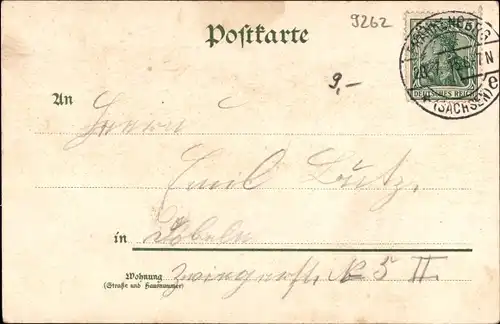 9262
Postkarte
FRANKENBERG
(SACHSEN)
DEUTSCHES REICH
9,-
An
Herrn
Emil
in Döbeln
Wohnung
(Straße und Hausnummer)
Zwingerstr. № 5 II.